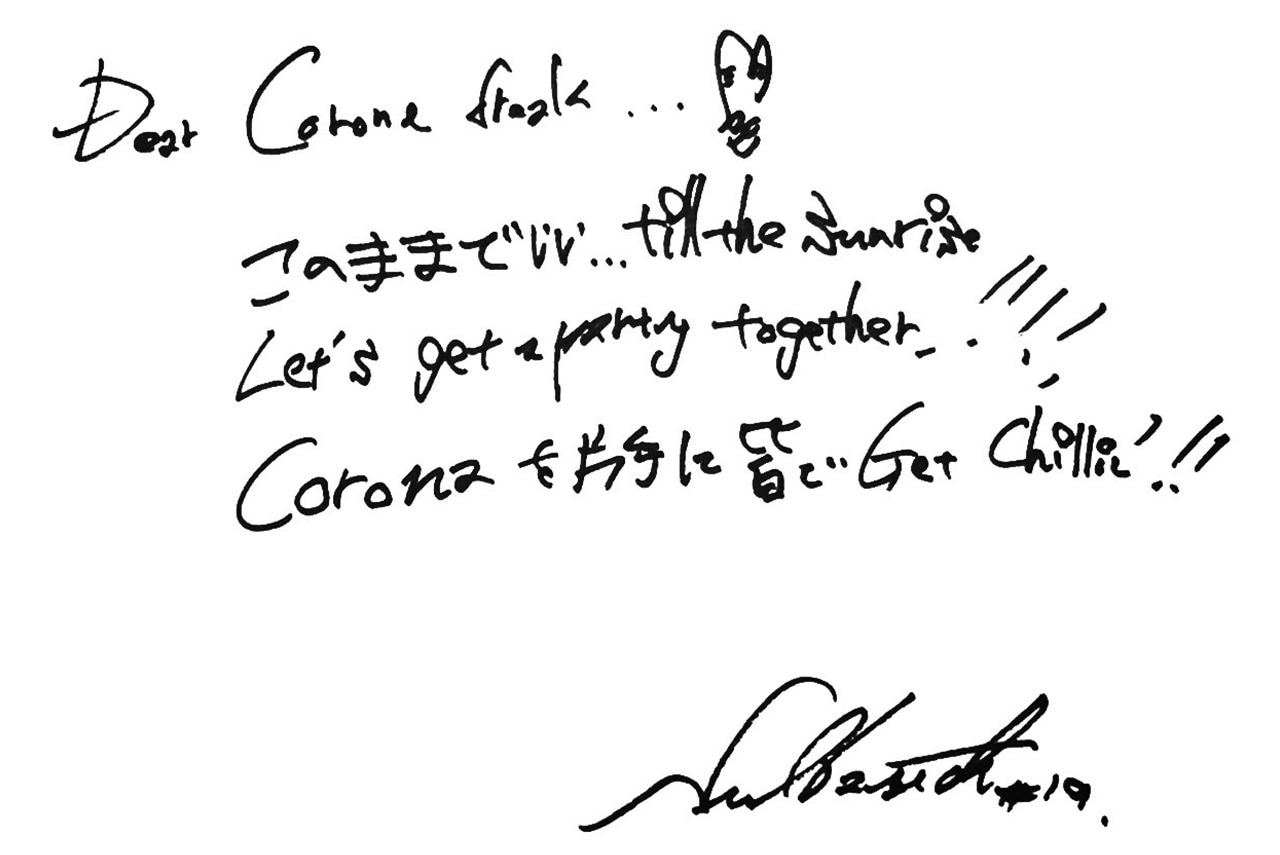 Dear Corona freak...!!
このままでいい...till the sunrise
Let's get a party together...!!!!
Coronaを片手に皆でGet Chillin'!!
#19.